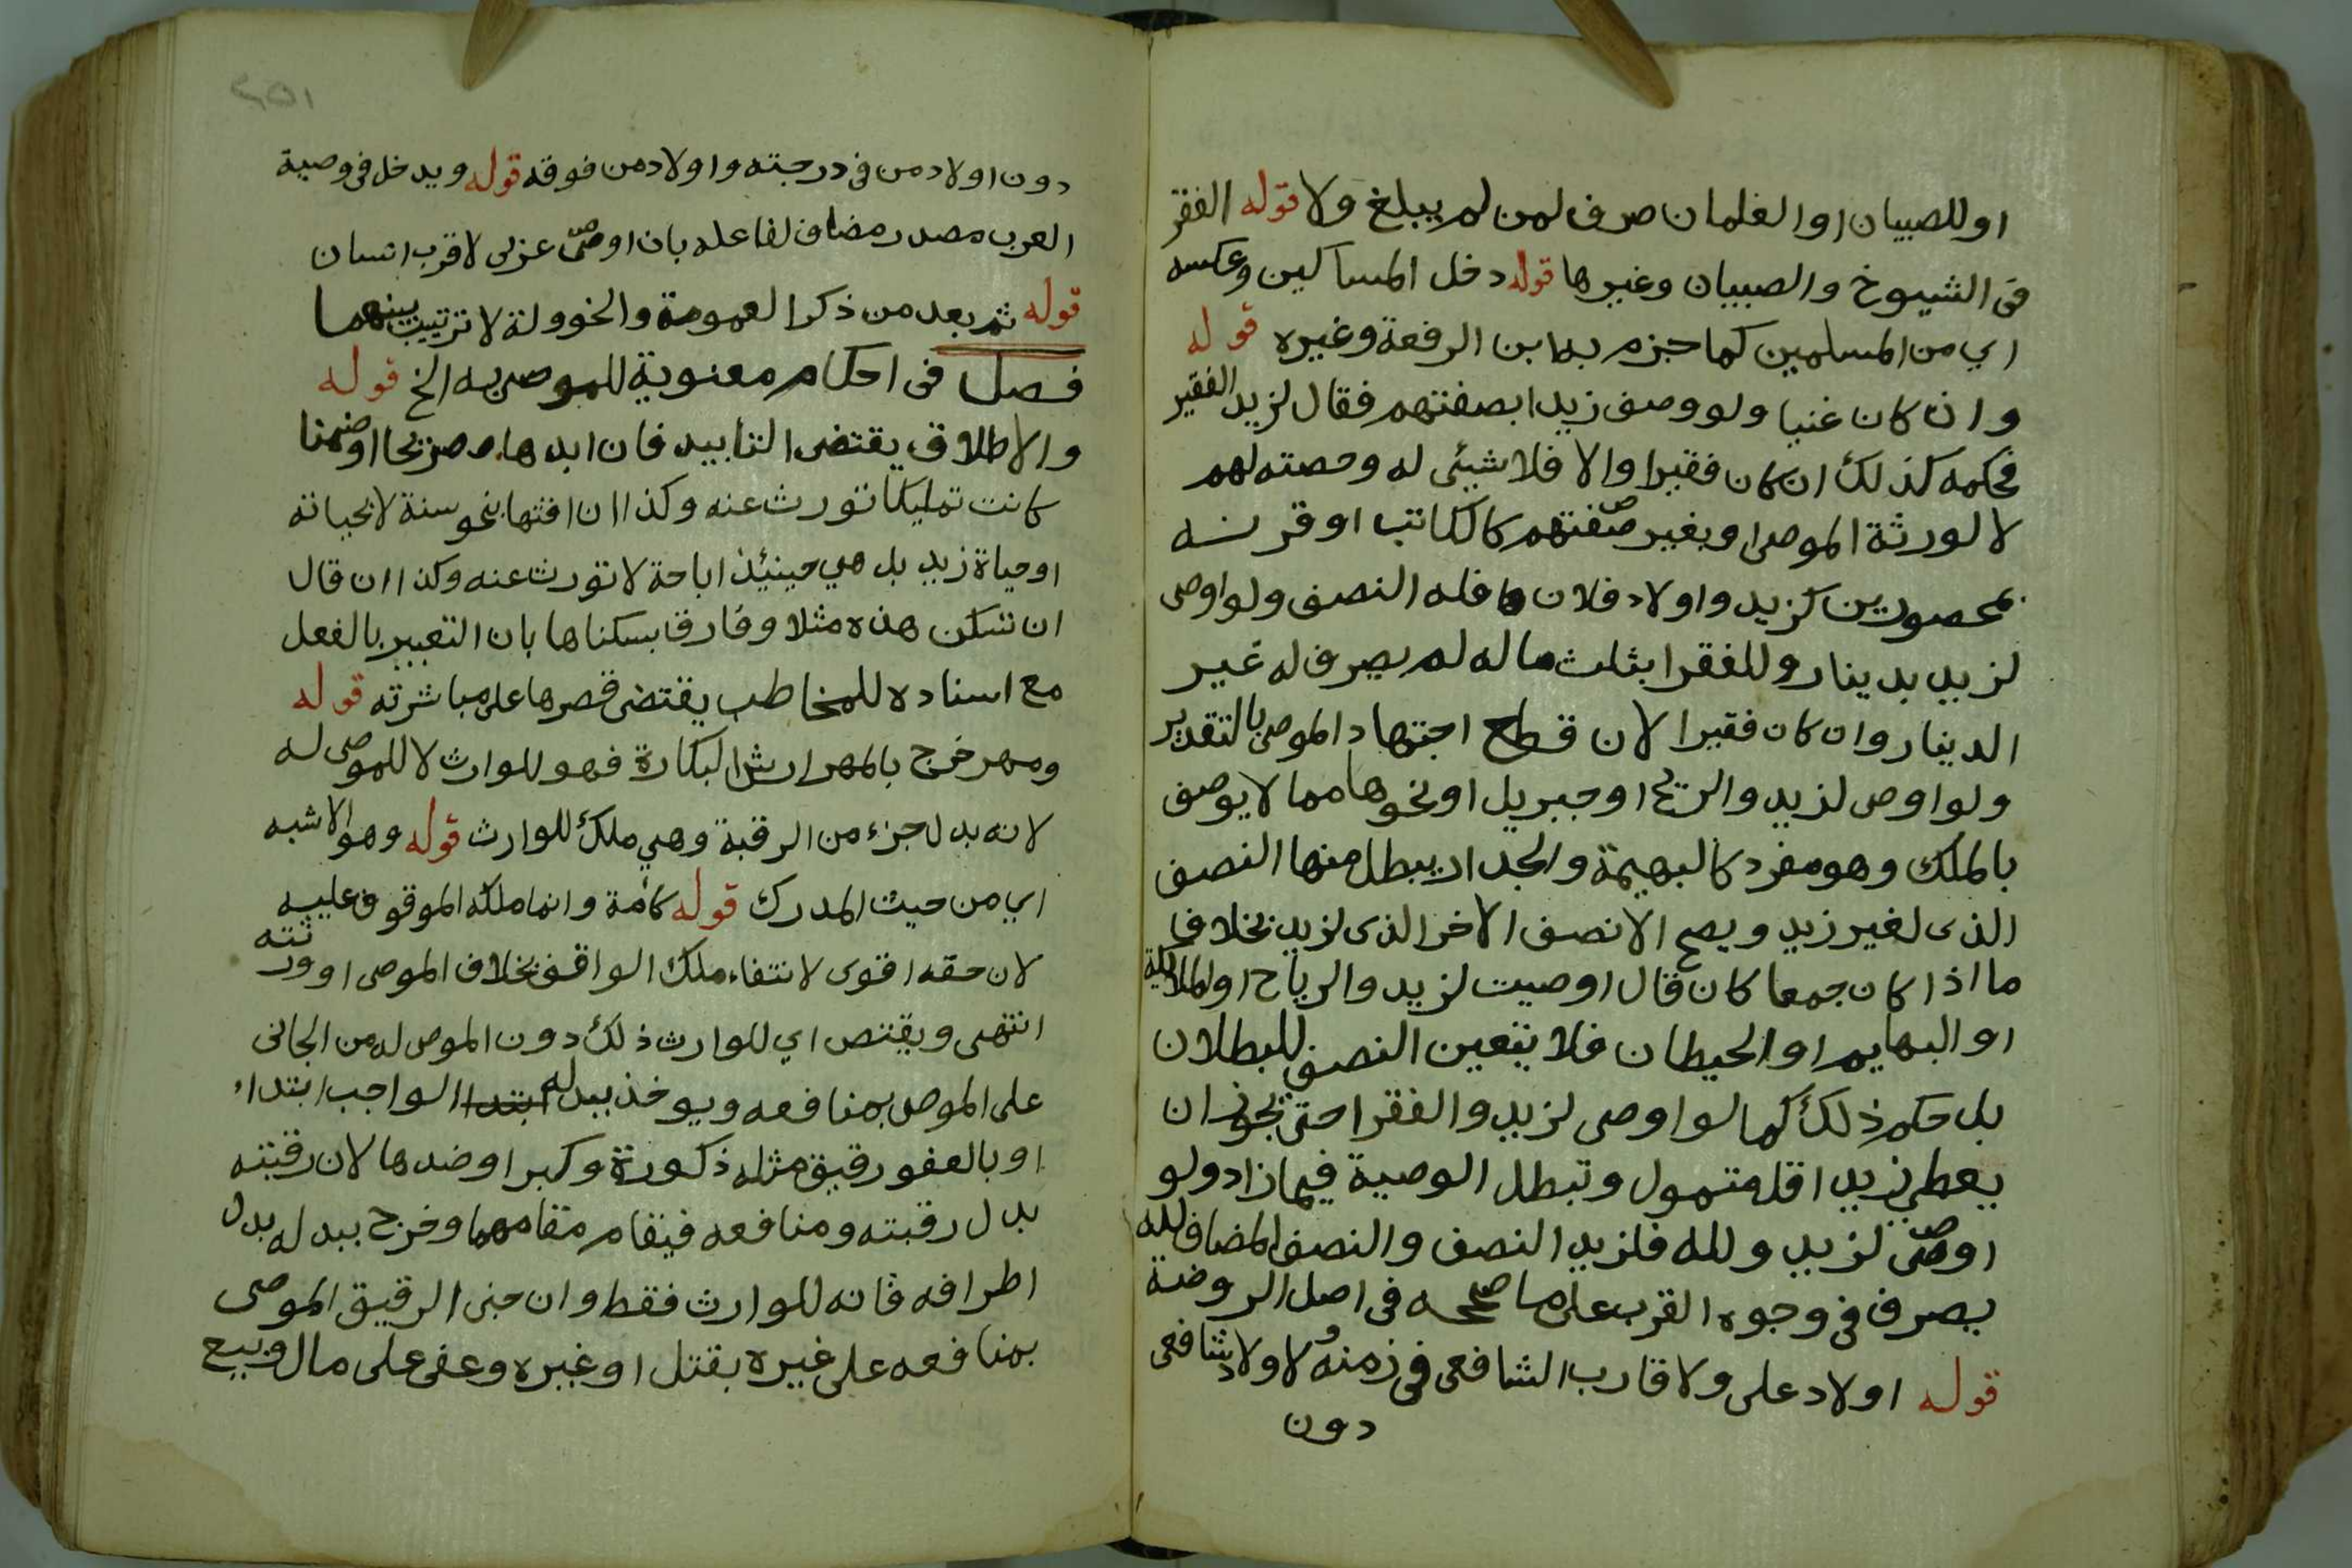 او للصبيان او الغلمان صرف لمن لم يبلغ ولا قوله الفقر
في الشيوخ والصبيان وغيرها قوله دخل المساكين وعكسه
اي من المسلمين كما جزم به ابن الرفعة وغيره قوله
وان كان غنيا ولو وصف زيدا بصفتهم فقال لزيد الفقير
فحكمه كذلك ان كان فقيرا والا فلا شيئ له وحصته لهم
لا لورثة الموصى او بغير صفتهم كالكاتب او قرنه
بمحصورين كزيد واولاد فلان فله النصف ولو اوصى
لزيد بدينار وللفقرا بثلث ماله لم يصرف له غير
الدينار وان كان فقيرا لان قطع اجتهاد الموصى بالتقدير
ولو اوصى لزيد والريح او جبريل او نحوها مما لا يوصف
بالملك وهو مفرد كالبهيمة والجدار يبطل منها النصف
الذي لغير زيد ويصح الا نصف الاخر الذي لزيد بخلاف
ما اذا كان جمعا كان قال اوصيت لزيد والرياح او الملايكة
او البهايم او الحيطان فلا يتعين النصف للبطلان
بل حكم ذلك كما لو اوصى لزيد والفقرا حتى يجوز ان
يعطى زيد اقل متمول وتبطل الوصية فيما زاد ولو
اوصى لزيد ولله فلزيد النصف والنصف المضاف لله
يصرف في وجوه القرب على ما صححه في اصل الروضة
قوله اولاد على ولاقارب الشافعى في زمنه لاولاد شافعى
دون
٢٥١
دون اولاد من في درجته واولاد من فوقه قوله ويدخل في وصية
العرب مصدر مضاف لفاعله بان اوصى عربى لاقرب انسان
قوله ثم بعد من ذكر العمومة والخوولة لا ترتيب بينهما
فصل في احكام معنوية للموصى به الخ قوله
والاطلاق يقتضى التابيد فان ابدها صريحا او ضمنا
كانت تمليكا تورث عنه وكذا ان اقتها بنحو سنة لا بحياته
او حياة زيد بل هي حينئذ اباحة لا تورث عنه وكذا ان قال
ان تسكن هذه مثلا وفارق بسكناها بان التعبير بالفعل
مع اسناده للمخاطب يقتضى قصرها على مباشرته قوله
ومهر خرج بالمهر ارش البكارة فهو للوارث لا للموصى له
لانه بدل جزء من الرقبة وهي ملك للوارث قوله وهو الاشبه
اي من حيث المدرك قوله كامة وانما ملكه الموقوف عليه
لان حقه اقوى لانتفاء ملك الواقف بخلاف الموصى او ورثته
انتهى ويقتص اي للوارث ذلك دون الموصى له من الجانى
على الموصى بمنافعه ويوخذ ببدله الواجب ابتداء
او بالعفو رقيق مثله ذكورة وكبرا او ضدها لان رقبته
بدل رقبته ومنافعه فيقام مقامهما وخرج ببدله بدل
اطرافه فانه للوارث فقط وان جنى الرقيق الموصى
بمنافعه على غيره بقتل او غيره وعفى على مال وبيع